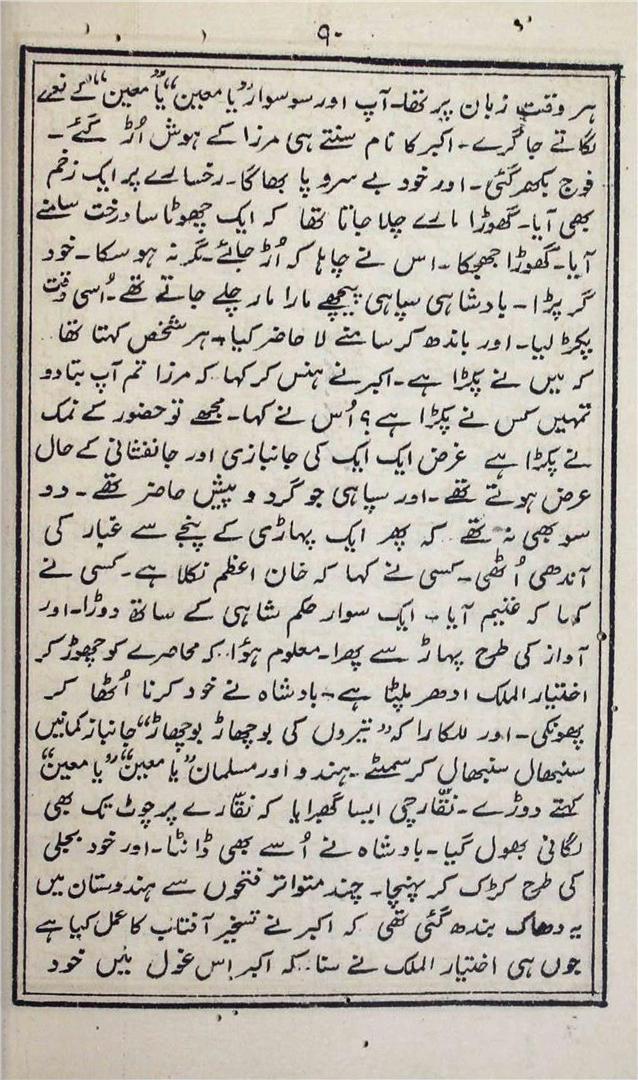 ۹۰
ہر وقت زبان پر تھا۔ آپ اور سو سوار "یا معین" یا معین" کے نعرے
لگاتے جا گرے۔ اکبر کا نام سنتے ہی مرزا کے ہوش اُڑ گئے۔
فوج بکھر گئی۔ اور خود بے سر و پا بھاگا۔ رخسارے پر ایک زخم
بھی آیا۔ گھوڑا مارے چلا جاتا تھا کہ ایک چھوٹا سا درخت سامنے
آیا۔ گھوڑا جھجکا۔ اس نے چاہا کہ اُڑ جائے۔ مگر نہ ہو سکا۔ خود
گر پڑا۔ بادشاہی سپاہی پیچھے مارا مار چلے جاتے تھے۔ اُسی وقت
پکڑ لیا۔ اور باندھ کر سامنے لا حاضر کیا۔ ہر شخص کہتا تھا
کہ میں نے پکڑا ہے۔ اکبر نے ہنس کر کہا۔ کہ مرزا تم آپ بتا دو
تمہیں کس نے پکڑا ہے؟ اُس نے کہا۔ مجھے تو حضور کے نمک
نے پکڑا ہے غرض ایک ایک کی جانبازی اور جانفشانی کے حال
عرض ہوتے تھے۔ اور سپاہی جو گرد و پیش حاضر تھے۔ دو
سو بھی نہ تھے۔ کہ پھر ایک پہاڑی کے نیچے سے غبار کی
آندھی اُٹھی۔ کسی نے کہا کہ خان اعظم نکلا ہے۔ کسی نے
کہا کہ غنیم آیا۔ ایک سوار حکم شاہی کے ساتھ دوڑا۔ اور
آواز کی طرح پہاڑ سے پھرا۔ معلوم ہؤا۔ کہ محاصرے کو چھوڑ کر
اختیار الملک ادھر پلٹا ہے۔ بادشاہ نے خود کرنا اُٹھا کر
پھونکی۔ اور للکارا کہ "تیروں کی بوچھاڑ بوچھاڑ" جانباز کمانیں
سنبھال سنبھال کر سمٹے۔ ہندو اور مسلمان "یا معین" "یا معین"
کہتے دوڑے۔ نقّارچی ایسا گھبرایا کہ نقّارے پر چوٹ تک بھی
لگانی بھول گیا۔ بادشاہ نے اُسے بھی ڈانٹا۔ اور خود بجلی
کی طرح کڑک کر پہنچا۔ چند متواتر فتحوں سے ہندوستان میں
یہ دھاک بندھ گئی تھی کہ اکبر نے تسخیر آفتاب کا عمل کیا ہے
جوں ہی اختیار الملک نے سنا۔ کہ اکبر اِس غول میں خود